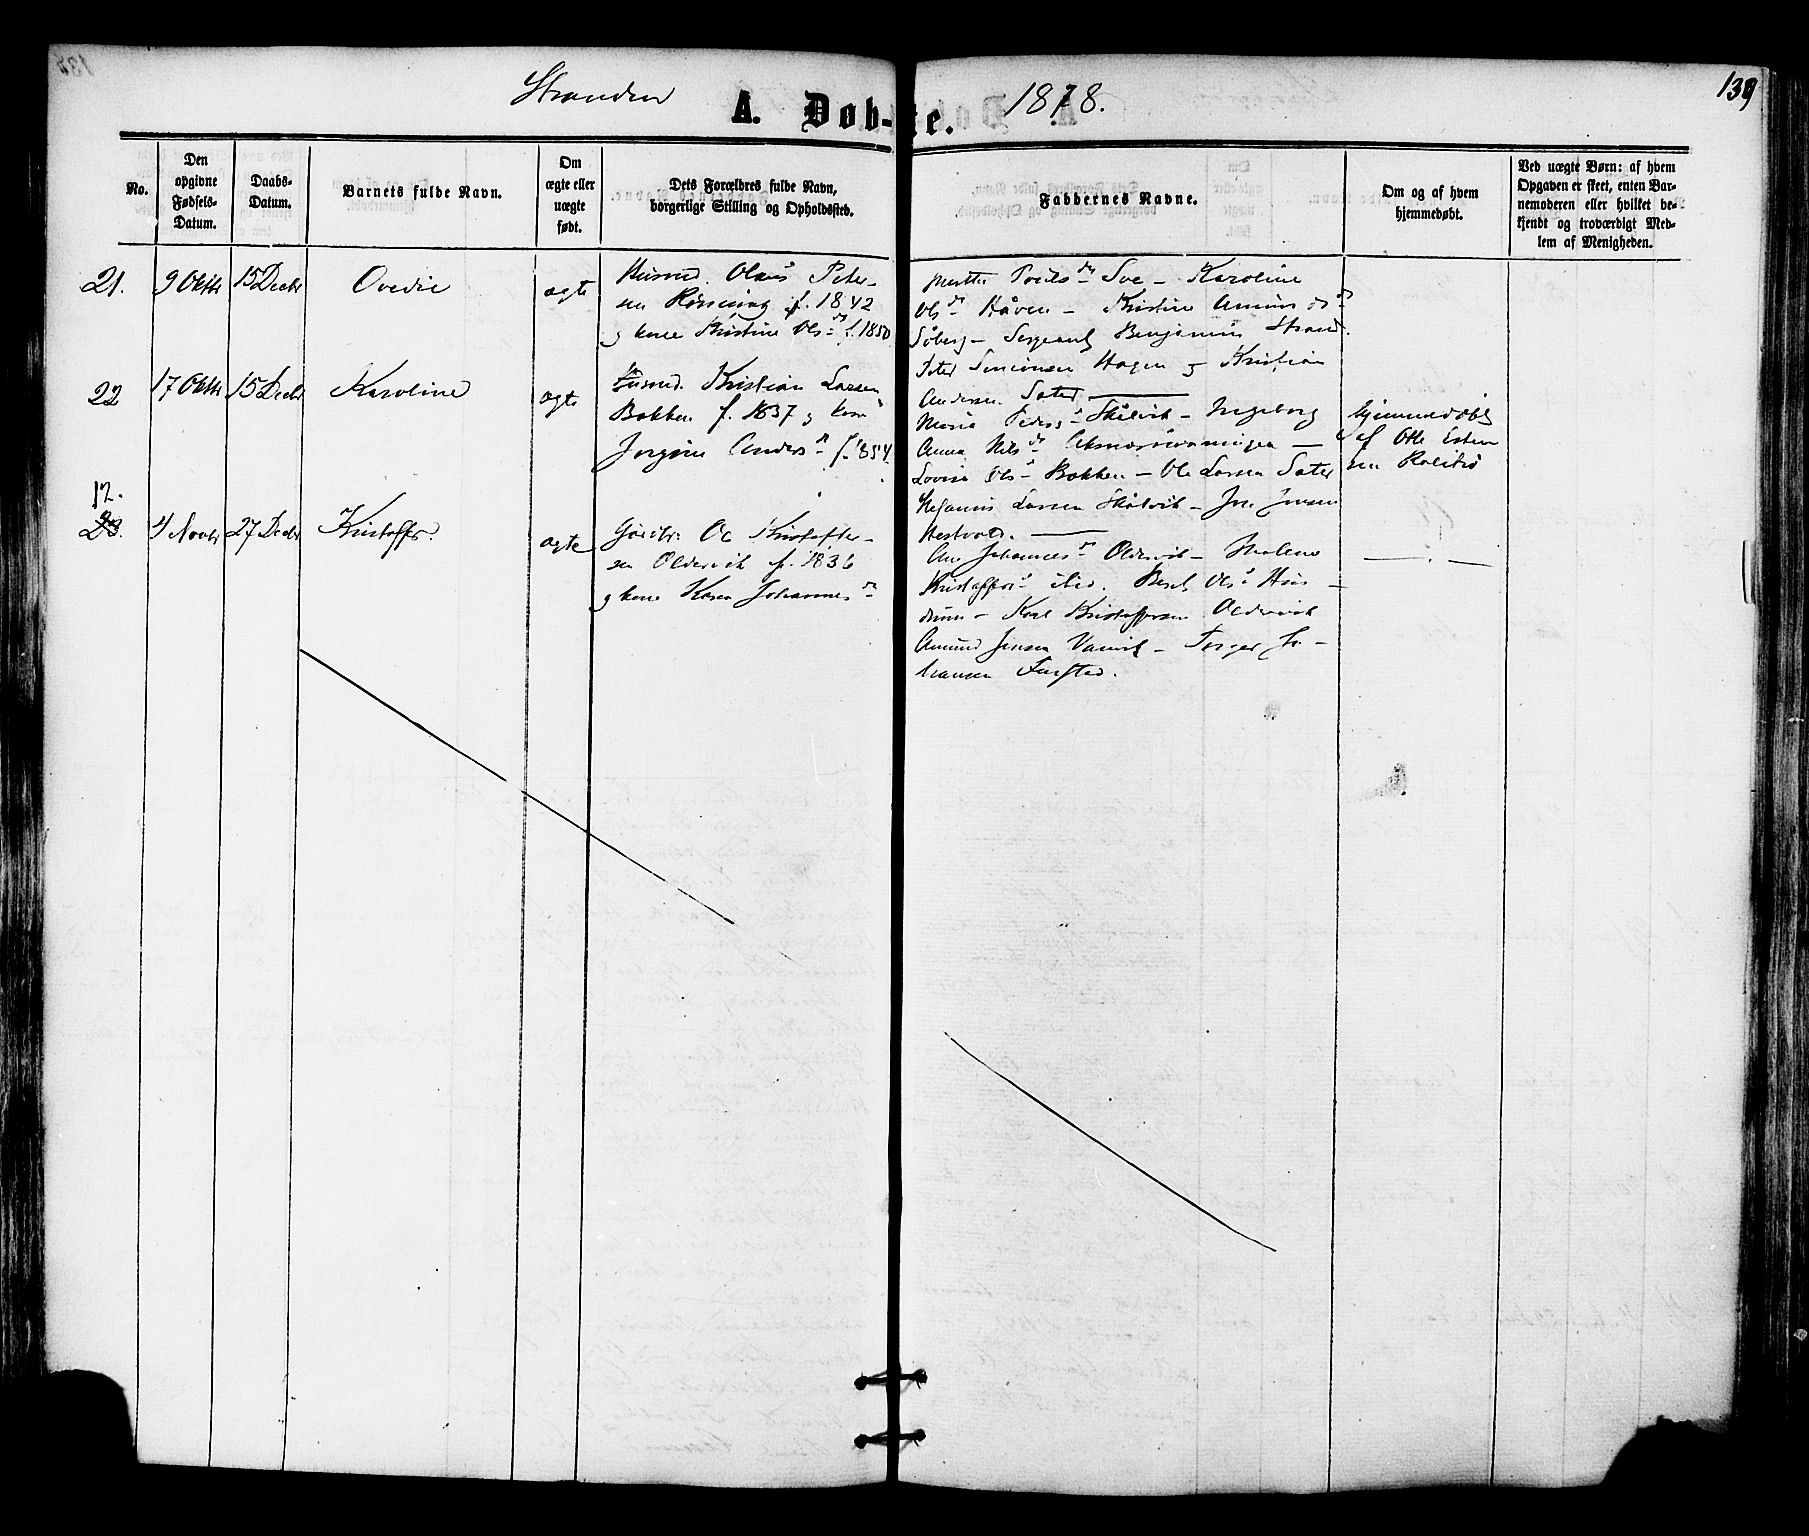 Stranden
A. Døb-te.
1878.
139
No.
Den opgivne Fødsels-Datum.
Daabs-Datum.
Barnets fulde Navn.
Om ægte eller uægte født.
Dets Forældres fulde Navn, borgerlige Stilling og Opholdssted.
Faddernes Navne.
Om og af hvem hjemmedøbt.
Ved uægte Børn: af hvem
Opgaven er skeet, enten Bar-
nemoderen eller hvilket be-
kjendt og troværdigt Med-
lem af Menigheden.
21. 9 Oktbr 15 Decbr Ovedie ægte
Husmd. Olaus Peter-
sen f. 1842
g kone Kristine Ols d. f. 1850
Karoline
Ols d. Håven – Kristine
Søberg – Sergeant Benjamin Strand
Peter Simonsen Hagen g Kristian
Andersen Sæter
22 17 Oktbr 15 Decbr Karoline ægte
Husmd. Kristian Larsen
Bakken f. 1837 g kone
Jørgine Anders d. f. 1854
Maria Peders d. Skålvik – Ingeborg
Anna Nils d.
Lovise Ols d. Bakken – Ole Larsen Sæter
Larsen Skålvik – Jensen
Hestvold.
hjemmedøbt
af Otte Esten
sen
12.
23. 4 Novbr 27 Decbr Kristoffer. ægte
Gårdbr. Ol Kristoffer-
sen Oldervik f. 1836
g kone Karen Johannes d.
Ane Johannes d. Oldervik – Malene
Kristoffers d. ibid. Beret Ols d. Hus-
drum – Karl Kristoffersen Oldervik
Amund Jensen Vanvik – Torger Jo-
hansen Farstad.